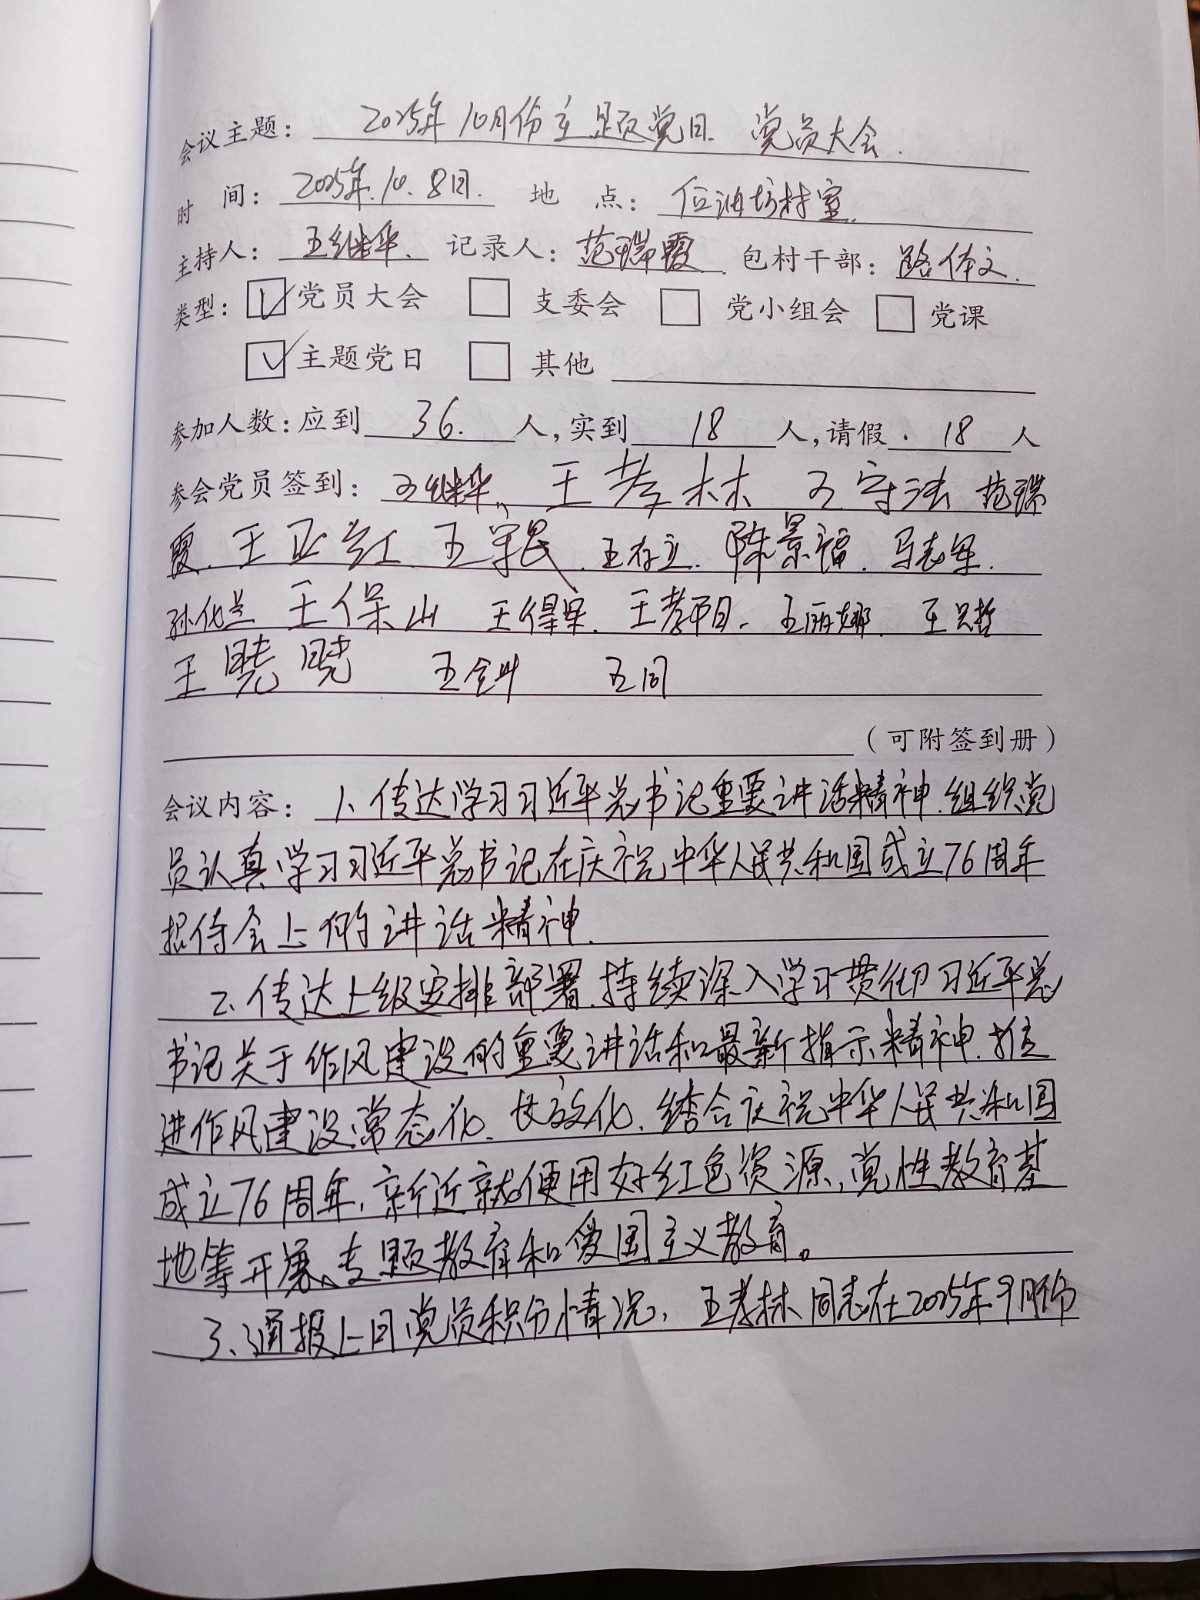 会议主题： 2025年10月份主题党日 党员大会.
时 间： 2025年.10.8日. 地 点： 位油坊村室.
主持人： 王继华. 记录人： 范瑞霞. 包村干部： 路体文.
类型： ☑党员大会 □ 支委会 □ 党小组会 □ 党课
☑主题党日 □ 其他
参加人数：应到 36. 人，实到 18 人，请假. 18 人
参会党员签到： 王继华、 王孝林 王守法 范瑞
霞. 王亚红 王军民 王存立. 陈景福. 马志军.
孙化兰 王保山 王得早. 王孝平 王丽娜.
王晓晓 王同
（可附签到册）
会议内容： 1、传达学习习近平总书记重要讲话精神.组织党
员认真学习习近平总书记在庆祝中华人民共和国成立76周年
招待会上的讲话精神.
2、传达上级安排部署.持续深入学习贯彻习近平总
书记关于作风建设的重要讲话和最新指示精神.推
进作风建设常态化、长效化.结合庆祝中华人民共和国
成立76周年，就近就便用好红色资源，党性教育基
地等开展专题教育和爱国主义教育。
3、通报上月党员积分情况，王孝林同志在2025年9月份